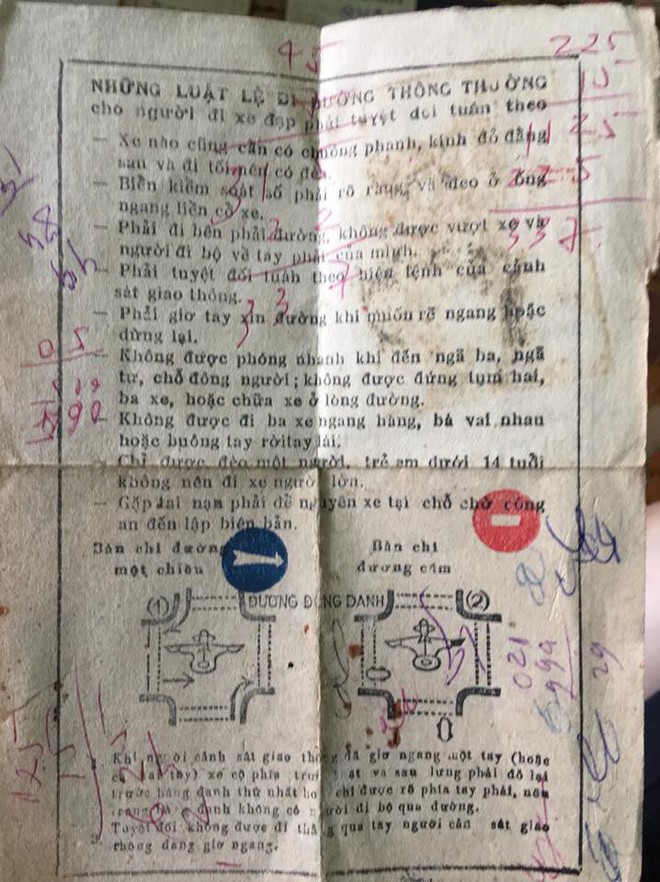 45
225
15
NHỮNG LUẬT LỆ ĐI ĐƯỜNG THÔNG THƯỜNG
cho người đi xe đạp phải tuyệt đối tuân theo
— Xe nào cũng cần có chuông phanh, kính đỏ đằng
sau và đi tối nên có đèn.
— Biển kiểm soát số phải rõ ràng, và đeo ở ống
ngang liền cổ xe.
— Phải đi bên phải đường, không được vượt xe và
người đi bộ về tay phải của mình.
— Phải tuyệt đối tuân theo hiệu lệnh của cảnh
sát giao thông.
— Phải giơ tay xin đường khi muốn rẽ ngang hoặc
dừng lại.
— Không được phóng nhanh khi đến ngã ba, ngã
tư, chỗ đông người; không được đứng tụm hai,
ba xe, hoặc chữa xe ở lòng đường.
— Không được đi ba xe ngang hàng, bá vai nhau
hoặc buông tay rời tay lái.
Chỉ được đèo một người, trẻ em dưới 14 tuổi
không nên đi xe người lớn.
— Gặp tai nạn phải để nguyên xe tại chỗ chờ công
an đến lập biên bản.
Bản chỉ đường
một chiều
Bản chỉ
đường cấm
(1) ĐƯỜNG ĐỒNG DANH (2)
021
994
29
Khi người cảnh sát giao thông đã giơ ngang một tay (hoặc
cả hai tay) xe cộ phía trước mặt và sau lưng phải đỗ lại
trước hàng đanh thứ nhất chỉ được rẽ phía tay phải, nếu
trong đanh không có người đi bộ qua đường.
Tuyệt đối không được đi thẳng qua tay người cảnh sát giao
thông đang giơ ngang.
125